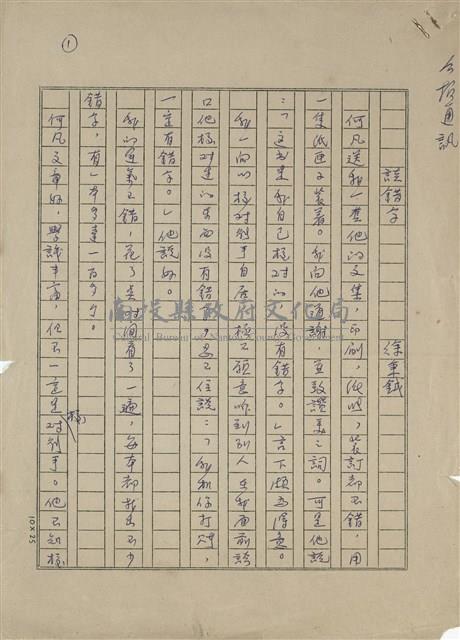 公教通訊
①
談錯字
徐東鉞
何凡送我一奘他的文集，印刷，紙興，裝訂都不錯，用
一集紙匣子裝着。我向他道謝，並致讚美之詞。可是他說
：「這書是我自己校對的，沒有錯字。」言下頗為得意。
我一向以校對對手自居，極不願意听到別人在我面前誇
口他校對的東西沒有錯，忍不住說：「我和你打賭，
一定有錯字。」他說好。
我的運氣不錯，花了点時間看了一遍，每本都找出不少
錯字，有一本多達一百多个。
何凡文章好，學識丰富，但不一定是校對對手。他不知校
10×25
南投縣政府文化局
Cultural Bureau of Nantou County Government